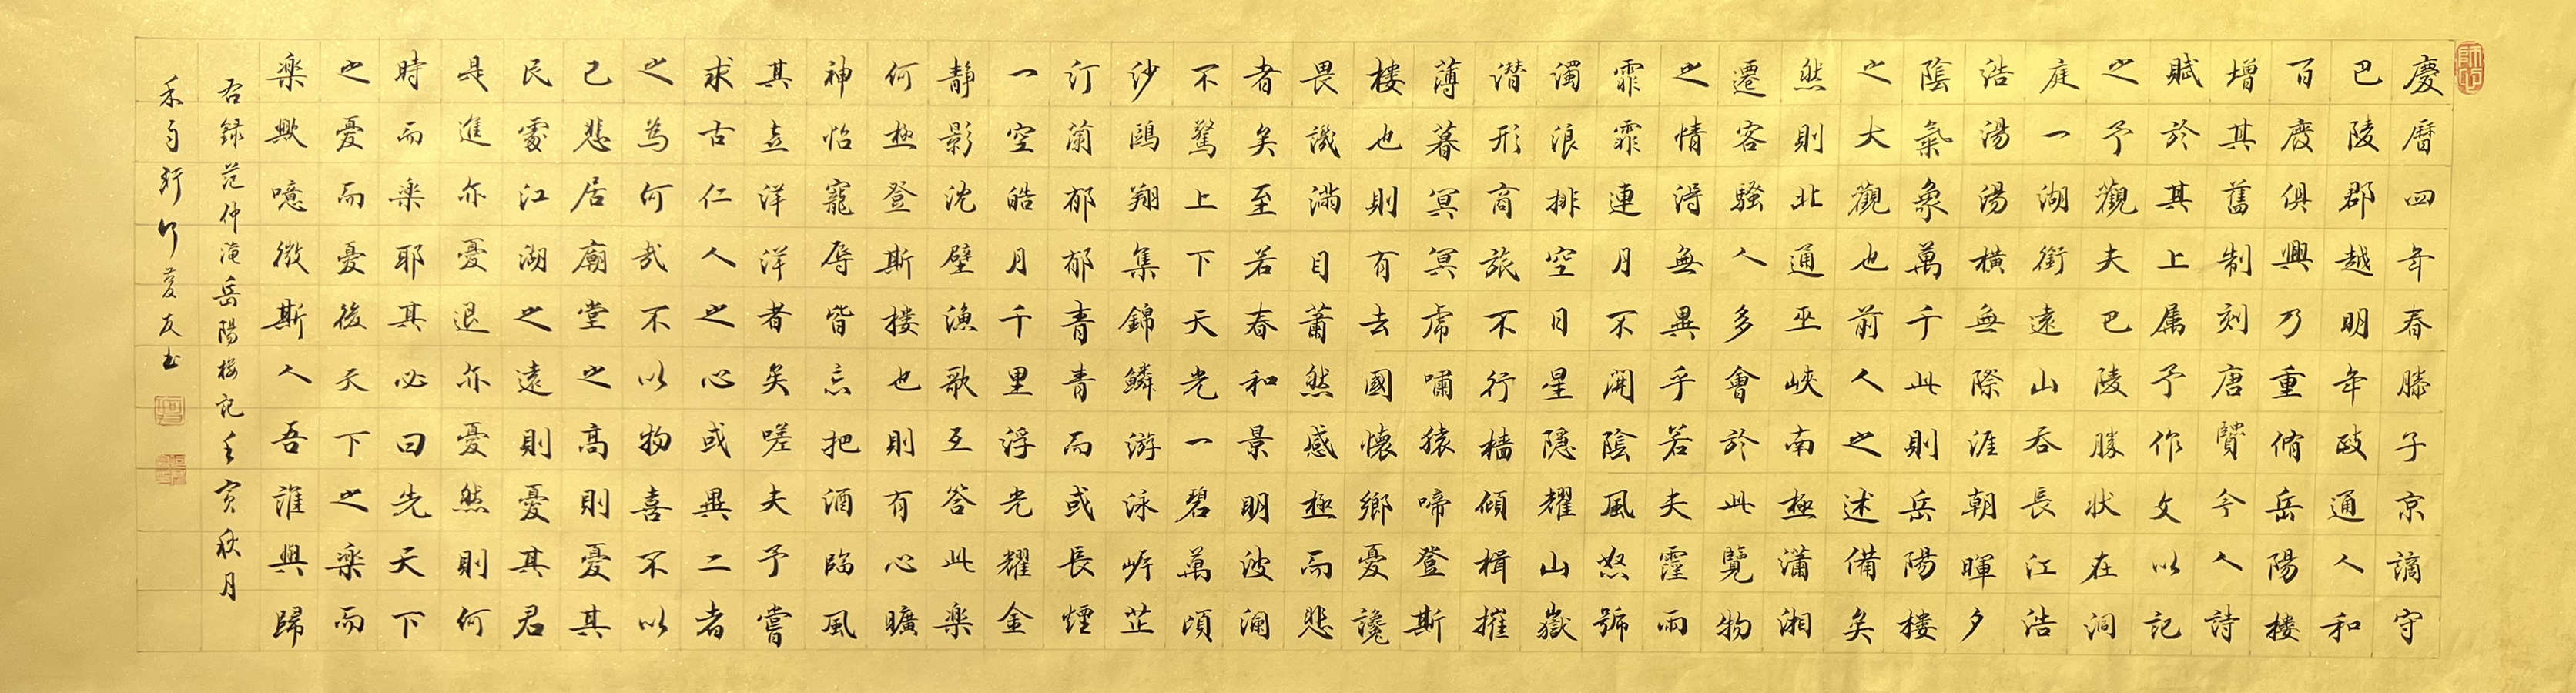 慶曆四年春滕子京謫守
巴陵郡越明年政通人和
百廢俱興乃重脩岳陽楼
增其舊制刻唐賢今人詩
賦於其上属予作文以記
之予觀夫巴陵勝状在洞
庭一湖銜遠山吞長江浩
浩湯湯橫無際涯朝暉夕
陰氣象萬千此則岳陽楼
之大觀也前人之述備矣
然則北通巫峽南極瀟湘
遷客騷人多會於此覽物
之情得無異乎若夫霪雨
霏霏連月不開陰風怒號
濁浪排空日星隱耀山嶽
潛形商旅不行檣傾楫摧
薄暮冥冥虎嘯猿啼登斯
楼也則有去國懷鄉憂讒
畏譏滿目蕭然感極而悲
者矣至若春和景明波瀾
不驚上下天光一碧萬頃
沙鷗翔集錦鱗游泳岸芷
汀蘭郁郁青青而或長煙
一空皓月千里浮光耀金
靜影沈璧漁歌互答此楽
何極登斯楼也則有心曠
神怡寵辱皆忘把酒臨風
其喜洋洋者矣嗟夫予嘗
求古仁人之心或異二者
之為何哉不以物喜不以
己悲居廟堂之高則憂其
民處江湖之遠則憂其君
是進亦憂退亦憂然則何
時而楽耶其必曰先天下
之憂而憂後天下之楽而
楽歟噫微斯人吾誰與歸
右録范仲淹岳陽楼記壬寅秋月
友书